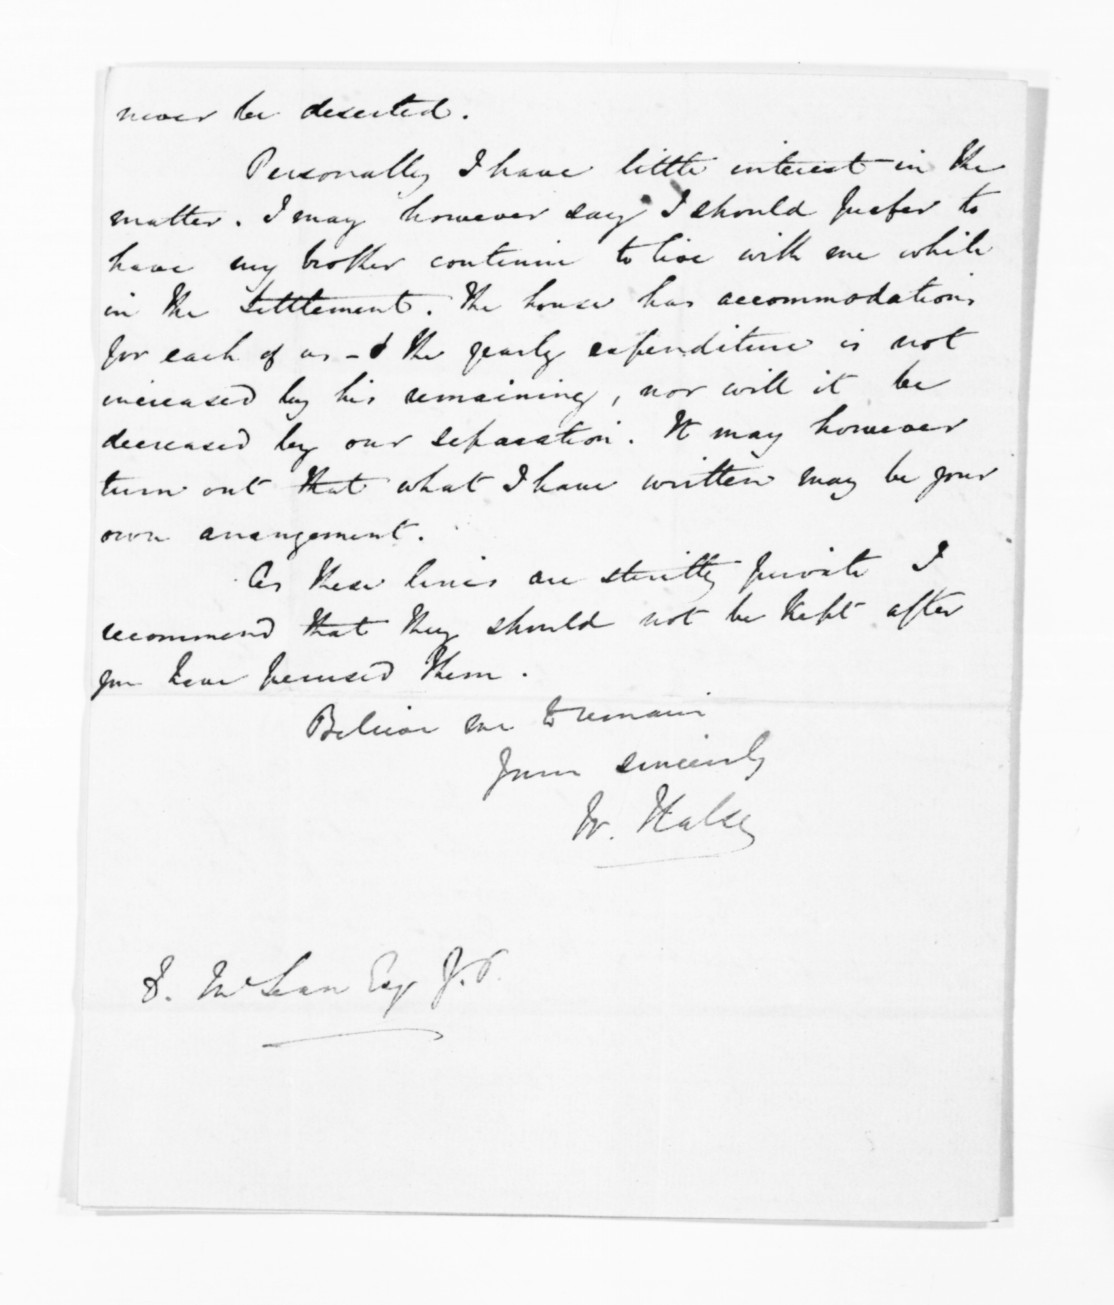 never be deserted.
Personally I have little interest in the
matter. I may however say I should prefer to
have my brother continue to live with me while
in the Settlement. The house has accommodations
for each of us - & the yearly expenditure is not
increased by his remaining, nor will it be
decreased by our separation. It may however
turn out that what I have written may be your
own arrangement.
As these lines are strictly private I
recommend that they should not be kept after
you have perused them.
Believe me to remain
Yours sincerely
W. Halse
D. McLean Esq J.P.